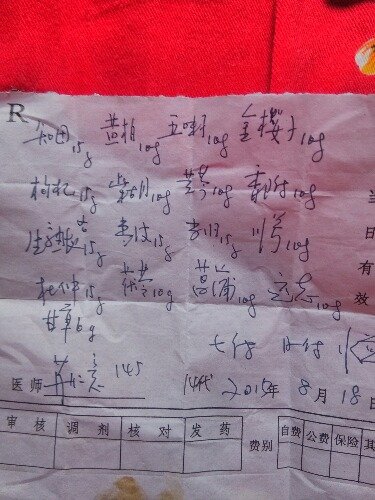 R
知母15g 黄柏10g 五味子10g 金樱子10g
枸杞15g 柴胡10g 黄芩10g 香附10g
当
生龙牡各15g 15g 15g 川芎10g
日
有
杜仲15g 茯苓10g 菖蒲10g 远志10g
效
甘草6g
七付
医师 145
2015年 8月 18日
审核 调剂 核对 发药 费别 自费 公费 保险 其